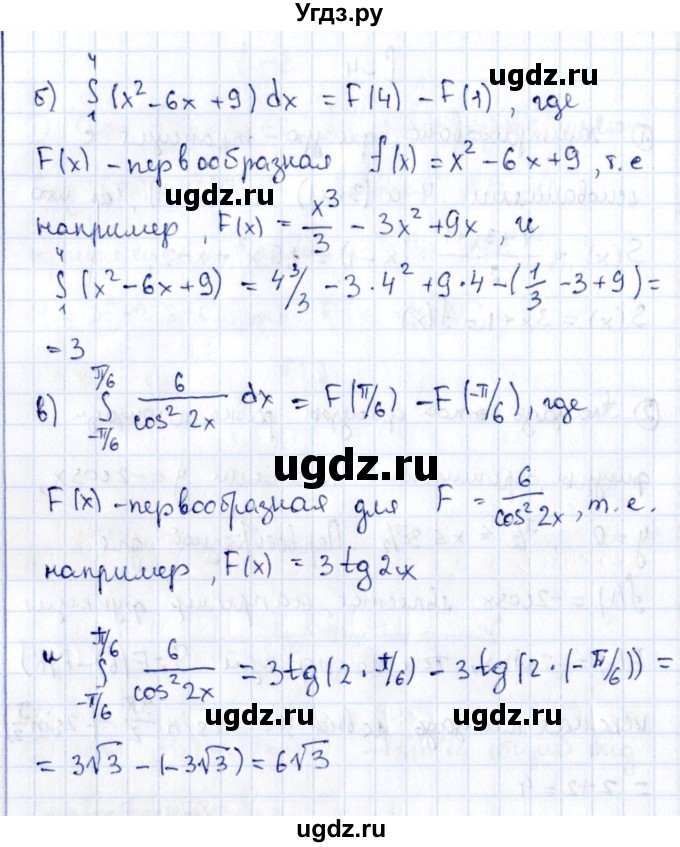 Угдз.ру
б) ∫₁⁴ (x² − 6x + 9) dx = F(4) − F(1), где
ugdz.ru
F(x) - первообразная f(x) = x² − 6x + 9, т.е.
ugdz.ru
например, F(x) = x³/3 − 3x² + 9x, и
∫₁⁴ (x² − 6x + 9) = 4³/3 − 3·4² + 9·4 − (1/3 − 3 + 9) =
= 3
в) ∫_{-π/6}^{π/6} 6/cos² 2x dx = F(π/6) − F(−π/6), где
ugdz.ru
F(x) - первообразная для F = 6/cos² 2x, т.е.
например, F(x) = 3 tg 2x
и ∫_{-π/6}^{π/6} 6/cos² 2x = 3tg(2·π/6) − 3tg(2·(−π/6)) =
ugdz.ru ugdz.ru
= 3√3 − (−3√3) = 6√3
ugdz.ru